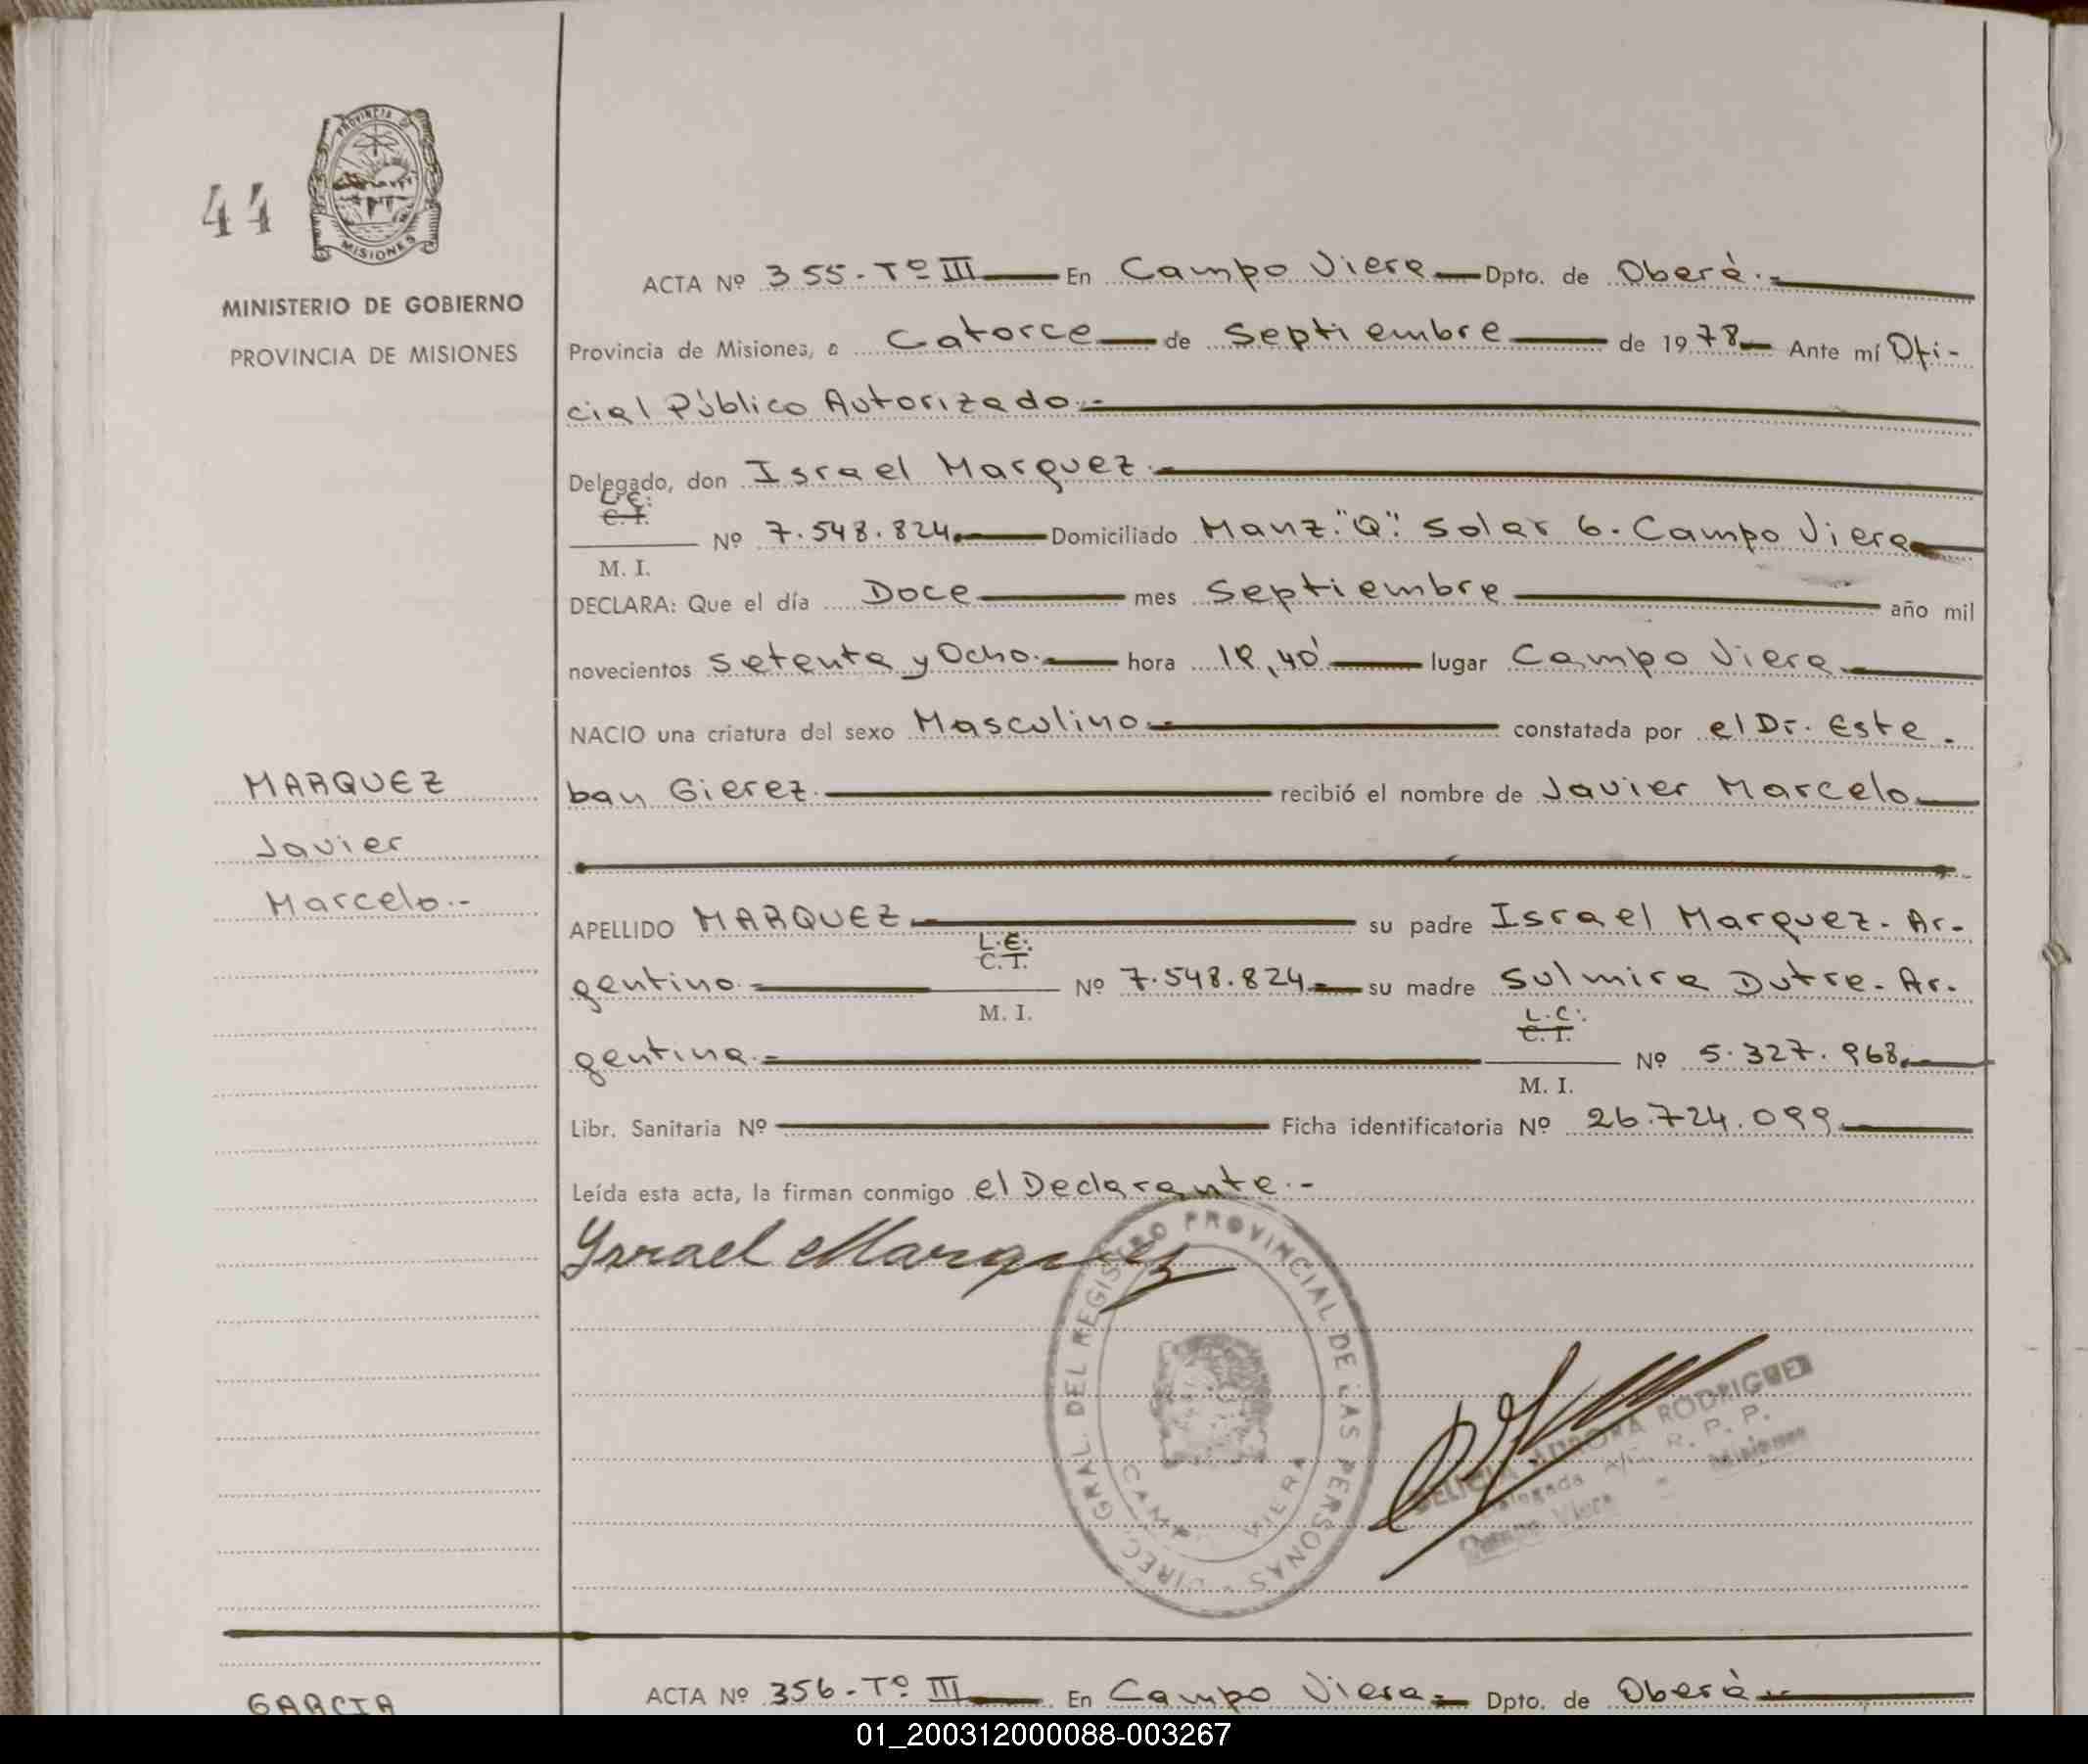 44
PROVINCIA DE
MISIONES
MINISTERIO DE GOBIERNO
PROVINCIA DE MISIONES
ACTA Nº 355-Tº III En Campo Viera Dpto. de Oberá.-
Provincia de Misiones, a Catorce de Septiembre de 1978 Ante mí Ofi-
cial Público Autorizado.-
Delegado, don Israel Marquez.
L.E.
C. I. Nº 7.548.824 Domiciliado Manz. "Q". Solar 6. Campo Viera
M. I.
DECLARA: Que el día Doce mes Septiembre año mil
novecientos Setenta y Ocho. hora lugar Campo Viera
NACIO una criatura del sexo Masculino.- constatada por el Dr. Este-
MARQUEZ
ban Gierez. recibió el nombre de Javier Marcelo
Javier
Marcelo.-
APELLIDO MARQUEZ su padre Israel Marquez. Ar-
L.E.
C. I.
gentino. Nº 7.548.824 su madre Sulmira Dutra. Ar-
M. I.
L.C.
C. I.
gentina.- Nº 5.327.968
M. I.
Libr. Sanitaria Nº Ficha identificatoria Nº 26.724.099
Leída esta acta, la firman conmigo el Declarante.-
Ysrael Marquez
DIREC. GRAL. DEL REGISTRO PROVINCIAL DE LAS PERSONAS
CAMPO VIERA
RODRIGUEZ
Delegada R. P. P.
Campo Viera - Misiones
GARCIA
ACTA Nº 356-Tº III En Campo Viera Dpto. de Oberá
01_200312000088-003267